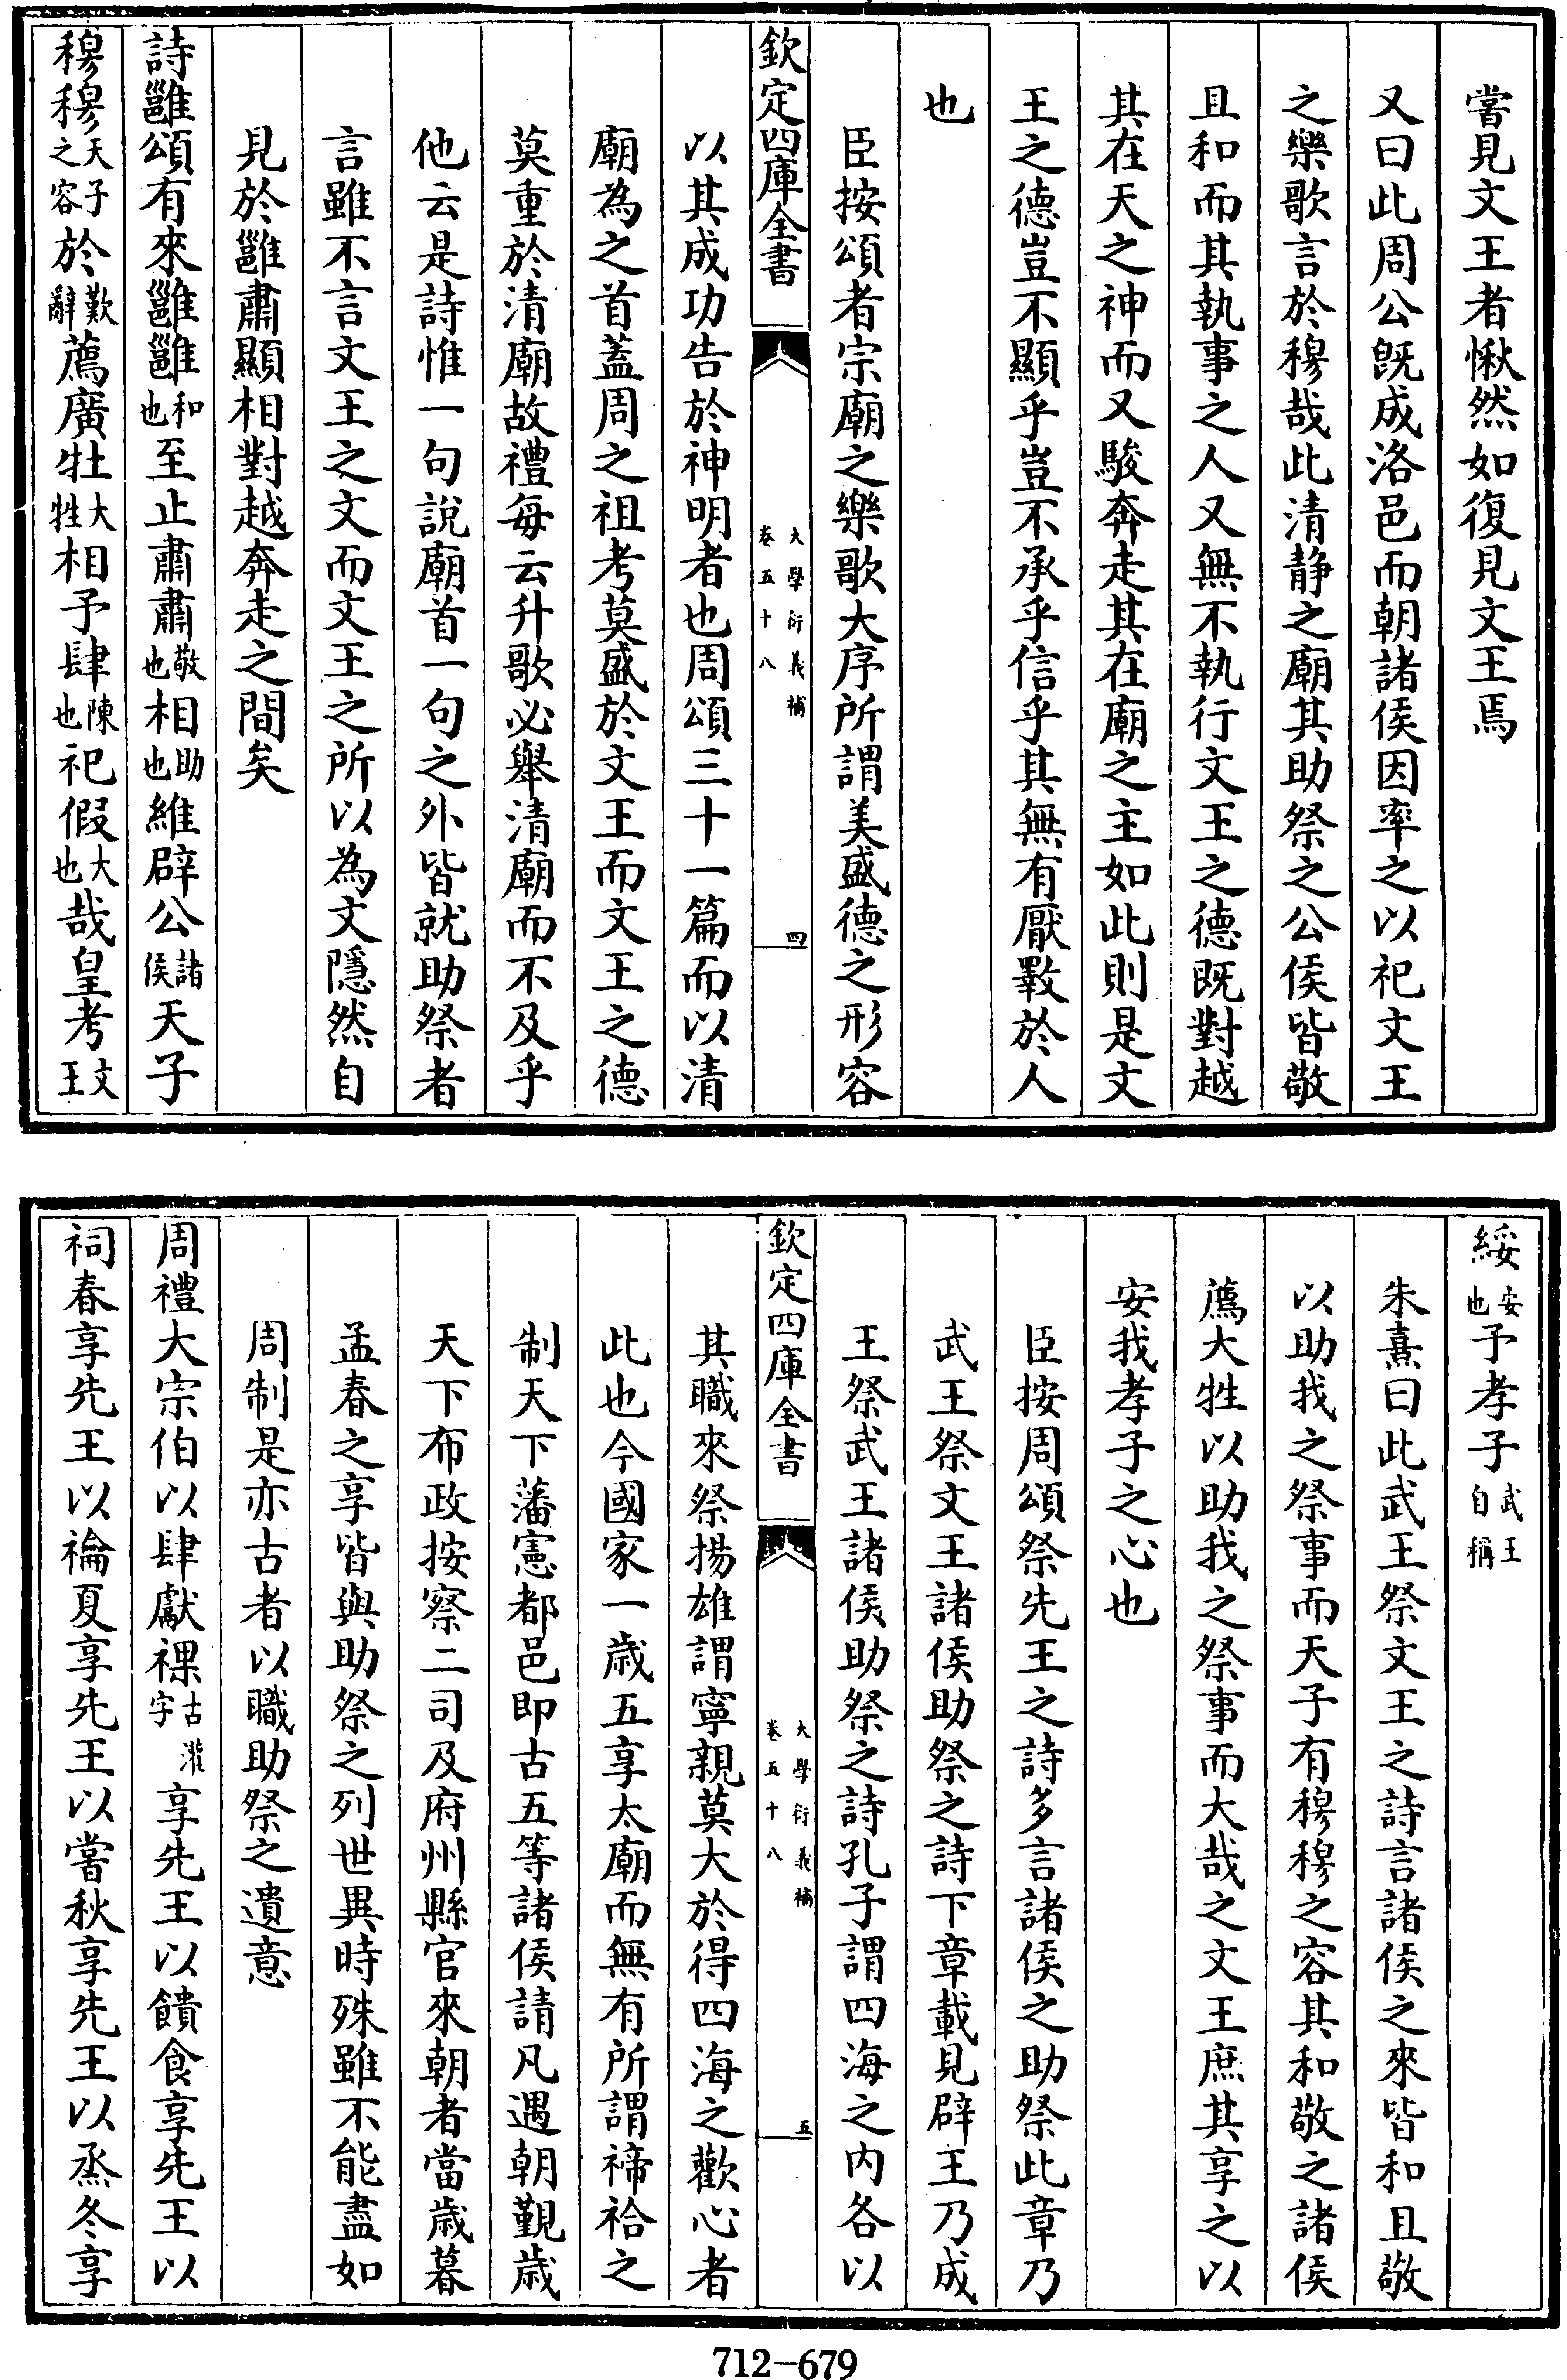 嘗見文王者愀然如復見文王焉
又曰此周公既成洛邑而朝諸侯因率之以祀文王
之樂歌言於穆哉此清静之廟其助祭之公侯皆敬
且和而其執事之人又無不執行文王之德既對越
其在天之神而又駿奔走其在廟之主如此則是文
王之德豈不顯乎豈不承乎信乎其無有厭斁於人
也
臣按頌者宗廟之樂歌大序所謂美盛德之形容
欽定四庫全書
大學衍義補
卷五十八
四
以其成功告於神明者也周頌三十一篇而以清
廟為之首蓋周之祖考莫盛於文王而文王之德
莫重於清廟故禮每云升歌必舉清廟而不及乎
他云是詩惟一句說廟首一句之外皆就助祭者
言雖不言文王之文而文王之所以為文隱然自
見於雝肅顯相對越奔走之間矣
詩雝頌有來雝雝和也至止肅肅敬也相助也維辟公諸侯天子
穆穆天子之容於歎辭薦廣牡大牲相予肆陳也祀假大也哉皇考文王
綏安也予孝子武王自稱
朱熹曰此武王祭文王之詩言諸侯之來皆和且敬
以助我之祭事而天子有穆穆之容其和敬之諸侯
薦大牲以助我之祭事而大哉之文王庶其享之以
安我孝子之心也
臣按周頌祭先王之詩多言諸侯之助祭此章乃
武王祭文王諸侯助祭之詩下章載見辟王乃成
王祭武王諸侯助祭之詩孔子謂四海之内各以
欽定四庫全書
大學衍義補
卷五十八
五
其職來祭揚雄謂寧親莫大於得四海之歡心者
此也今國家一歲五享太廟而無有所謂禘祫之
制天下藩憲都邑即古五等諸侯請凡遇朝覲歲
天下布政按察二司及府州縣官來朝者當歲暮
孟春之享皆與助祭之列世異時殊雖不能盡如
周制是亦古者以職助祭之遺意
周禮大宗伯以肆獻祼古灌字享先王以饋食享先王以
祠春享先王以禴夏享先王以嘗秋享先王以烝冬享
712-679